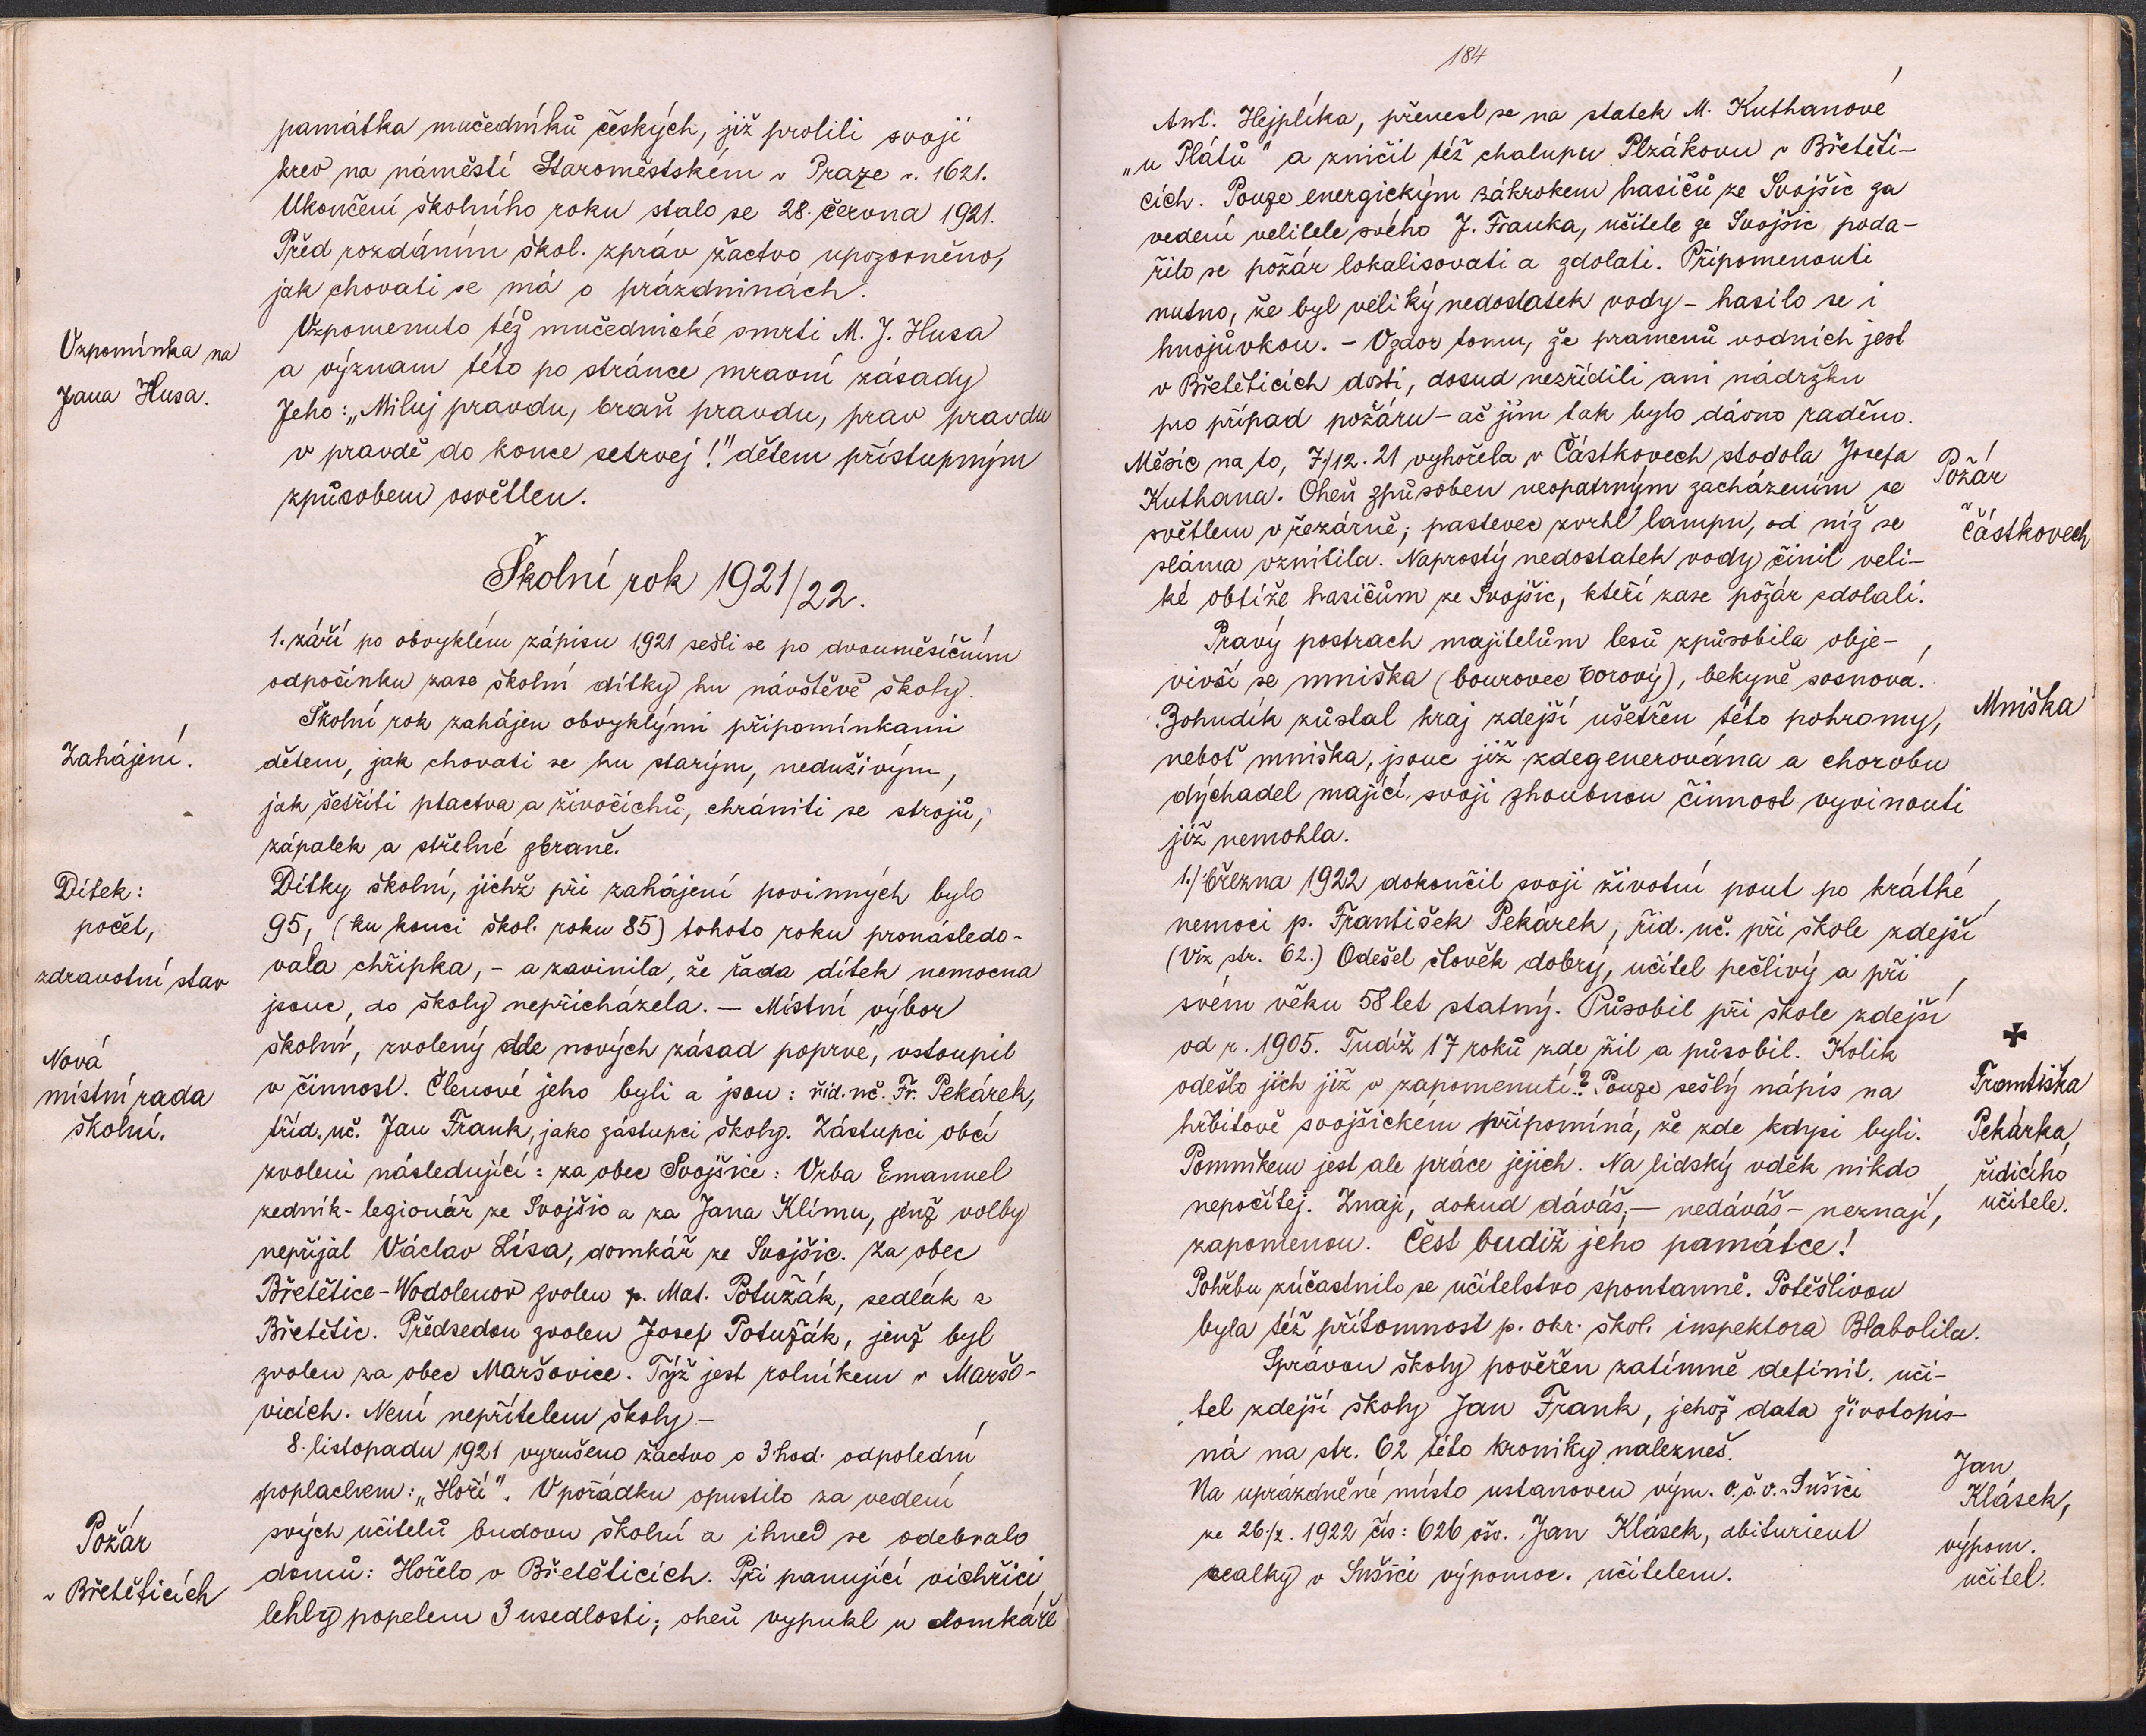 památka mučedníků českých, již prolili svoji
krev na náměstí Staroměstském v Praze r. 1621.
Ukončení školního roku stalo se 28. června 1921.
Před rozdáním škol. zpráv žactvo upozorněno,
jak chovati se má o prázdninách.
Vzpomínka na
Jana Husa.
Vzpomenuto též mučednické smrti M. J. Husa
a význam této po stránce mravní zásady
Jeho: „Miluj pravdu, braň pravdu, prav pravdu
v pravdě do konce setrvej!" dětem přístupným
způsobem osvětlen.
Školní rok 1921/22.
1. září po obvyklém zápisu 1921 sešli se po dvouměsíčním
odpočinku zase školní dítky ku návštěvě školy.
Zahájení.
Školní rok zahájen obvyklými připomínkami
dětem, jak chovati se ku starým, neduživým,
jak šetřiti ptactva a živočichů, chrániti se strojů,
zápalek a střelné zbraně.
Dítek:
počet,
zdravotní stav
Dítky školní, jichž při zahájení povinných bylo
95, (ku konci škol. roku 85) tohoto roku pronásledo-
vala chřipka, - a zavinila, že řada dítek nemocna
jsouc, do školy nepřicházela. — Místní výbor
Nová
místní rada
školní.
školní, zvolený dle nových zásad poprvé, vstoupil
v činnost. Členové jeho byli a jsou: říd. uč. Fr. Pekárek,
tříd. uč. Jan Frank, jako zástupci školy. Zástupci obcí
zvoleni následující: za obec Svojšice: Vrba Emanuel
zedník-legionář ze Svojšic a za Jana Klímu, jenž volby
nepřijal Václav Lísa, domkář ze Svojšic. Za obec
Břetětice-Vodolenov zvolen p. Mat. Potužák, sedlák z
Břetětic. Předsedou zvolen Josef Potužák, jenž byl
zvolen za obec Maršovice. Týž jest rolníkem v Maršo-
vicích. Není nepřítelem školy. -
8. listopadu 1921 vyrušeno žactvo o 3 hod. odpolední
poplachem: „Hoří". V pořádku opustilo za vedení
Požár
v Břetěticích
svých učitelů budovu školní a ihned se odebralo
domů: Hořelo v Břetěticích. Při panující vichřici
lehly popelem 3 usedlosti; oheň vypukl u domkáře
184
Ant. Hejplíka, přenesl se na statek M. Kuthanové
„u Plátů" a zničil též chalupu Plzákovu v Břetěti-
cích. Pouze energickým zákrokem hasičů ze Svojšic za
vedení velitele svého J. Franka, učitele ze Svojšic poda-
řilo se požár lokalisovati a zdolati. Připomenouti
nutno, že byl veliký nedostatek vody - hasilo se i
hnojůvkou. - Vzdor tomu, že pramenů vodních jest
v Břetěticích dosti, dosud nezřídili ani nádržku
pro případ požáru - ač jim tak bylo dávno raděno.
Měsíc na to, 7/12. 21 vyhořela v Částkovech stodola Josefa
Kuthana. Oheň způsoben neopatrným zacházením se
Požár
v Částkovech
světlem v řezárně; pastevec zvrhl lampu, od níž se
sláma vznítila. Naprostý nedostatek vody činil veli-
ké obtíže hasičům ze Svojšic, kteří zase požár zdolali.
Pravý postrach majitelům lesů způsobila obje-
vivší se mniška (bourovec borový), bekyně sosnová.
Mniška
Bohudík zůstal kraj zdejší ušetřen této pohromy,
neboť mniška, jsouc již zdegenerována a chorobu
dýchadel mající, svoji zhoubnou činnost vyvinouti
již nemohla.
1./ března 1922 dokončil svoji životní pout po krátké
nemoci p. František Pekárek, říd. uč. při škole zdejší
(Viz str. 62.) Odešel člověk dobrý, učitel pečlivý a při
svém věku 58 let statný. Působil při škole zdejší
od r. 1905. Tudíž 17 roků zde žil a působil. Kolik
✠
Františka
Pekárka,
řídicího
učitele.
odešlo jich již v zapomenutí? Pouze sešlý nápis na
hřbitově svojšickém připomíná, že zde kdysi byli.
Pomníkem jest ale práce jejich. Na lidský vděk nikdo
nepočítej. Znají, dokud dáváš, — nedáváš - neznají,
zapomenou. Čest budiž jeho památce!
Pohřbu zúčastnilo se učitelstvo spontanně. Potěšlivou
byla též přítomnost p. okr. škol. inspektora Blabolila.
Správou školy pověřen zatímně definit. uči-
tel zdejší školy Jan Frank, jehož data životopis-
ná na str. 62 této kroniky nalezneš.
Jan
Klásek,
výpom.
učitel.
Na uprázdněné místo ustanoven výn. o. š. v. v Sušici
ze 26./2. 1922 čís: 626 ošv. Jan Klásek, abiturient
realky v Sušici výpomoc. učitelem.